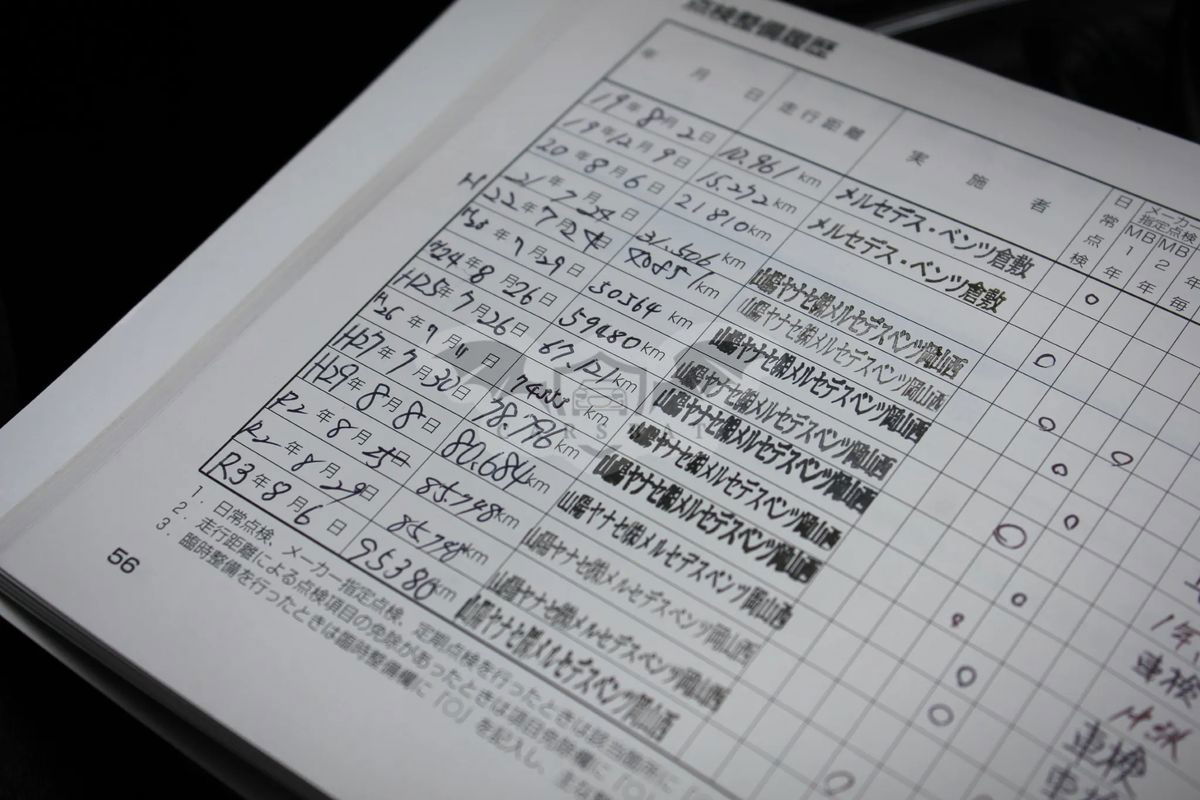 点検整備履歴
年 月 日 走行距離 実施者 日常点検 メーカー指定点検 MB1年 MB2年
19年8月2日 10.961km メルセデス・ベンツ倉敷
19年12月9日 15.272km メルセデス・ベンツ倉敷
20年8月6日 21810km 山陽ヤナセ㈱メルセデスベンツ岡山西
H 21年7月24日 31.506km 山陽ヤナセ㈱メルセデスベンツ岡山西
22年7月24日 km 山陽ヤナセ㈱メルセデスベンツ岡山西
年7月29日 50564km 山陽ヤナセ㈱メルセデスベンツ岡山西
H24年8月26日 59480km 山陽ヤナセ㈱メルセデスベンツ岡山西
H25年7月26日 67.121km 山陽ヤナセ㈱メルセデスベンツ岡山西
26年7月11日 km 山陽ヤナセ㈱メルセデスベンツ岡山西
H27年7月30日 78.796km 山陽ヤナセ㈱メルセデスベンツ岡山西
H29年8月8日 80.684km 山陽ヤナセ㈱メルセデスベンツ岡山西
R2年8月25日 85748km 山陽ヤナセ㈱メルセデスベンツ岡山西
R2年8月29日 85748km 山陽ヤナセ㈱メルセデスベンツ岡山西
R3年8月6日 95380km
1年
車検
車検
車検
1. 日常点検、メーカー指定点検、定期点検を行ったときは該当箇所に
2. 走行距離による点検項目の免除があったときは項目免除欄に「○
3. 臨時整備を行ったときは臨時整備欄に「○」を記入し、主な
56